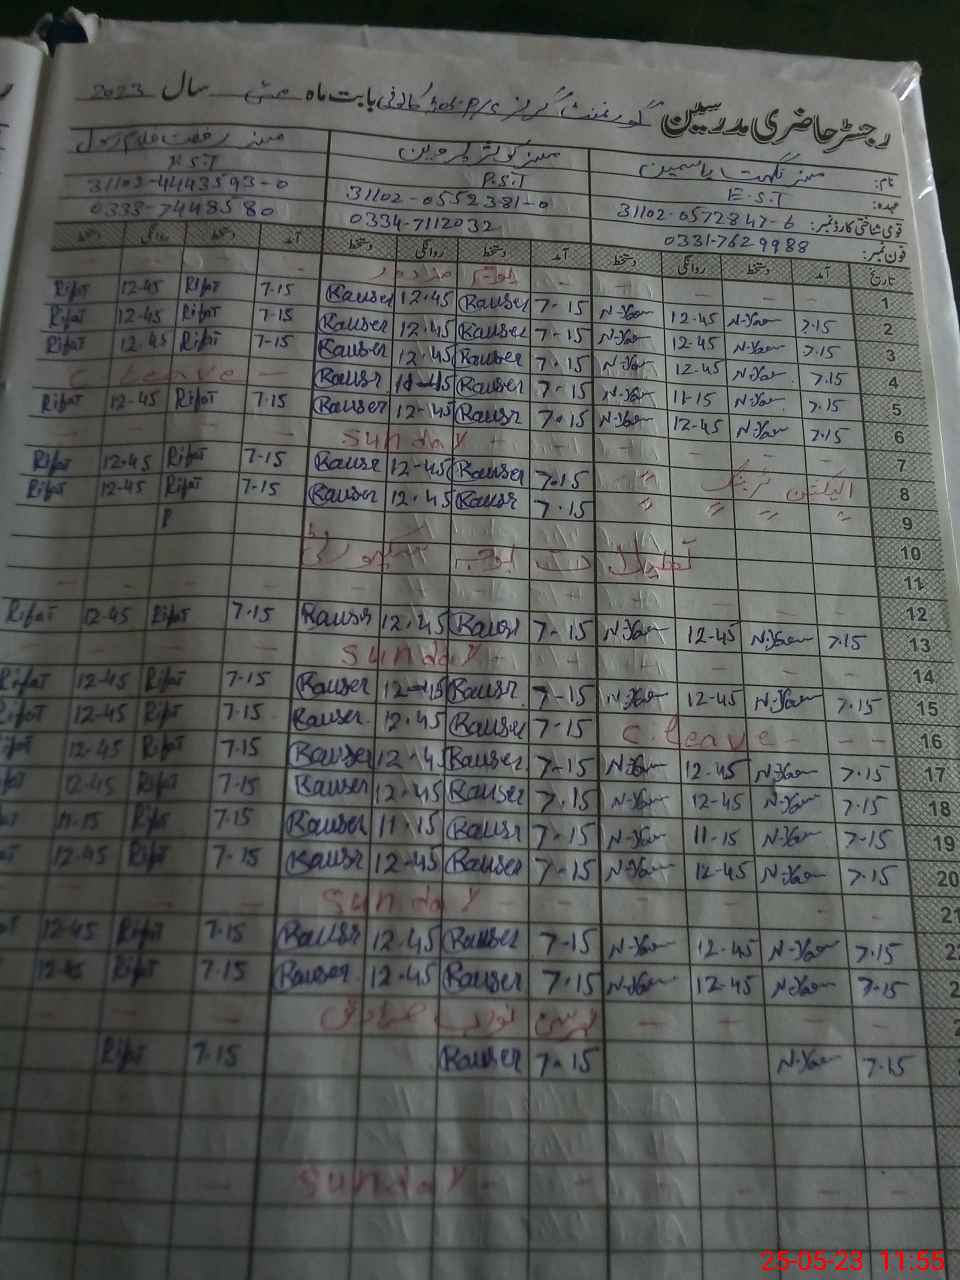 رجسٹر حاضری مدرسین گورنمنٹ گرلز بابت ماہ مئی سال 2023
نام: مسز نگہت یاسمین مسز کوثر پروین مسز رفعت غلام رسول
عہدہ: E.S.T P.S.T P.S.T
قومی شناختی کارڈ نمبر: 31102-0572847-6 31102-0552381-0 31102-4443593-0
فون نمبر: 0331-7629988 0334-7112032 0333-7448580
تاریخ آمد دستخط روانگی دستخط آمد دستخط روانگی دستخط آمد دستخط روانگی دستخط
1 - - - - - - - -
2 7.15 N-Yasm 12-45 N-Yasm 7-15 Kauser 12.45 Kauser 7-15 Rifat 12-45 Rifat
3 7.15 N-Yasm 12-45 N-Yasm 7-15 Kauser 12-45 Kauser 7-15 Rifat 12-45 Rifat
4 7.15 N-Yasm 12-45 N-Yasm 7-15 Kauser 12-45 Kauser 7-15 Rifat 12.45 Rifat
5 7.15 N-Yasm 11-15 N-Yasm 7-15 Kauser 11-15 Kausr - C leave
6 7.15 N-Yasm 12-45 N-Yasm 7-15 Kausr 12-45 Kauser 7.15 Rifat 12-45 Rifat
7 - - - - - - Sunday - - - -
8 الیکشن ٹریننگ " 7.15 Kauser 12-45 Kauser 7-15 Rifat 12.45 Rifat
9 " " " " 7.15 Kausr 12.45 Kauser 7.15 Rifat 12-45 Rifat
10 P
11 تعطیلات
12 - - - - - - - -
13 7.15 N-Yasm 12-45 N-Yasm 7-15 Kausr 12.45 Kausr 7.15 Rifat 12-45 Rifat
14 - - - - Sunday - - - -
15 7.15 N-Yasm 12-45 N-Yasm 7-15 Kausr 12-45 Kauser 7.15 Rifat 12-45 Rifat
16 - - - C.leave 7-15 Kauser 12.45 Kauser 7-15 Rift 12-45 Rifat
17 7.15 N-Yasm 12-45 N-Yasm 7-15 Kauser 12.45 Kauser 7.15 Rifat 12-45
18 7.15 N-Yasm 12-45 N-Yasm 7.15 Kauser 12.45 Kauser 7-15 Rifat 12-45
19 7-15 N-Yasm 11-15 N-Yasm 7-15 Kausr 11-15 Kauser 7.15 Rift 11-15
20 7.15 N-Yasm 12-45 N-Yasm 7-15 Kauser 12-45 Kausr 7-15 Rifat 12-45
21 - - - - Sunday - - - -
7.15 N-Yasm 12-45 N-Yasm 7-15 Kauser 12.45 Kausr 7-15 Rifat 12-45
7-15 N-Yasm 12-45 N-Yasm 7.15 Kauser 12.45 Kauser 7-15 Rifat 12-45
- - - - عرس نواب صادق - - -
7.15 N-Yasm 7-15 Kauser 7.15 Rifat
- - - - Sunday - - -
25-05-23 11:55